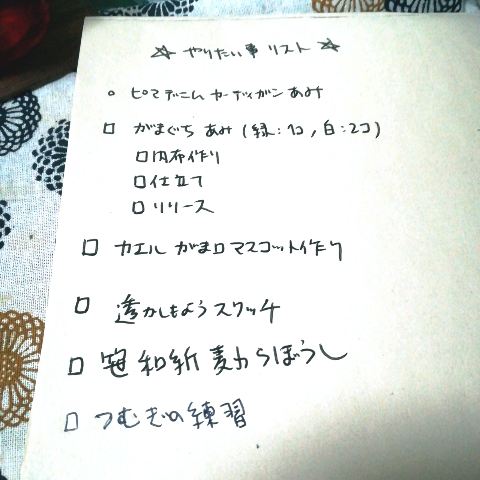 ☆ やりたい事 リスト ☆
○ ピマデニム カーディガン あみ
□ がまぐち あみ (緑:1コ, 白:2コ)
□ 内布作り
□ 仕立て
□ リリース
□ カエル がま口 マスコット作り
□ 透かしもよう スワッチ
□ 和紙 麦わらぼうし
□ つむぎの練習